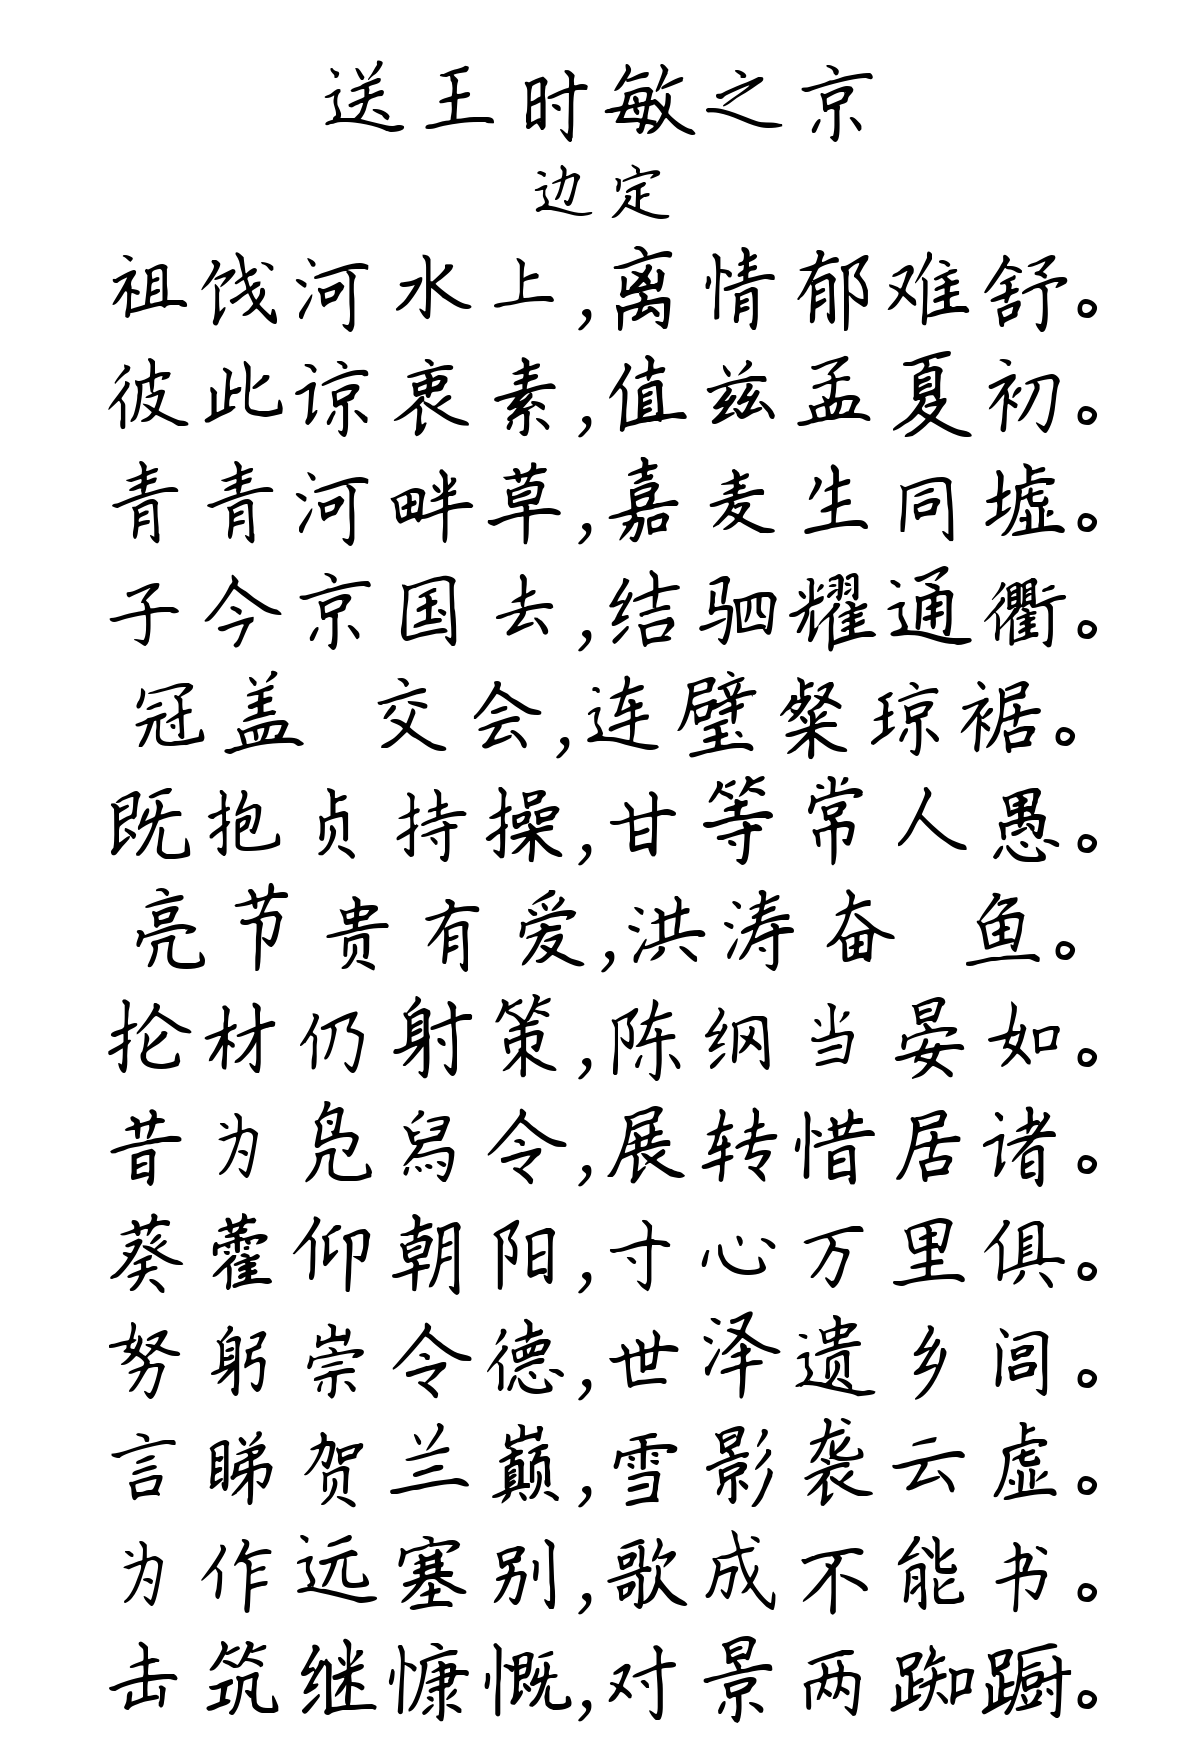 送王时敏之京
边定
祖饯河水上,离情郁难舒。
彼此谅衷素,值兹孟夏初。
青青河畔草,嘉麦生同墟。
子今京国去,结驷耀通衢。
冠盖 交会,连璧粲琼裾。
既抱贞持操,甘等常人愚。
亮节贵有爱,洪涛奋 鱼。
抡材仍射策,陈纲当晏如。
昔为凫舄令,展转惜居诸。
葵藿仰朝阳,寸心万里俱。
努躬崇令德,世泽遗乡闾。
言睇贺兰巅,雪影袭云虚。
为作远塞别,歌成不能书。
击筑继慷慨,对景两踟蹰。